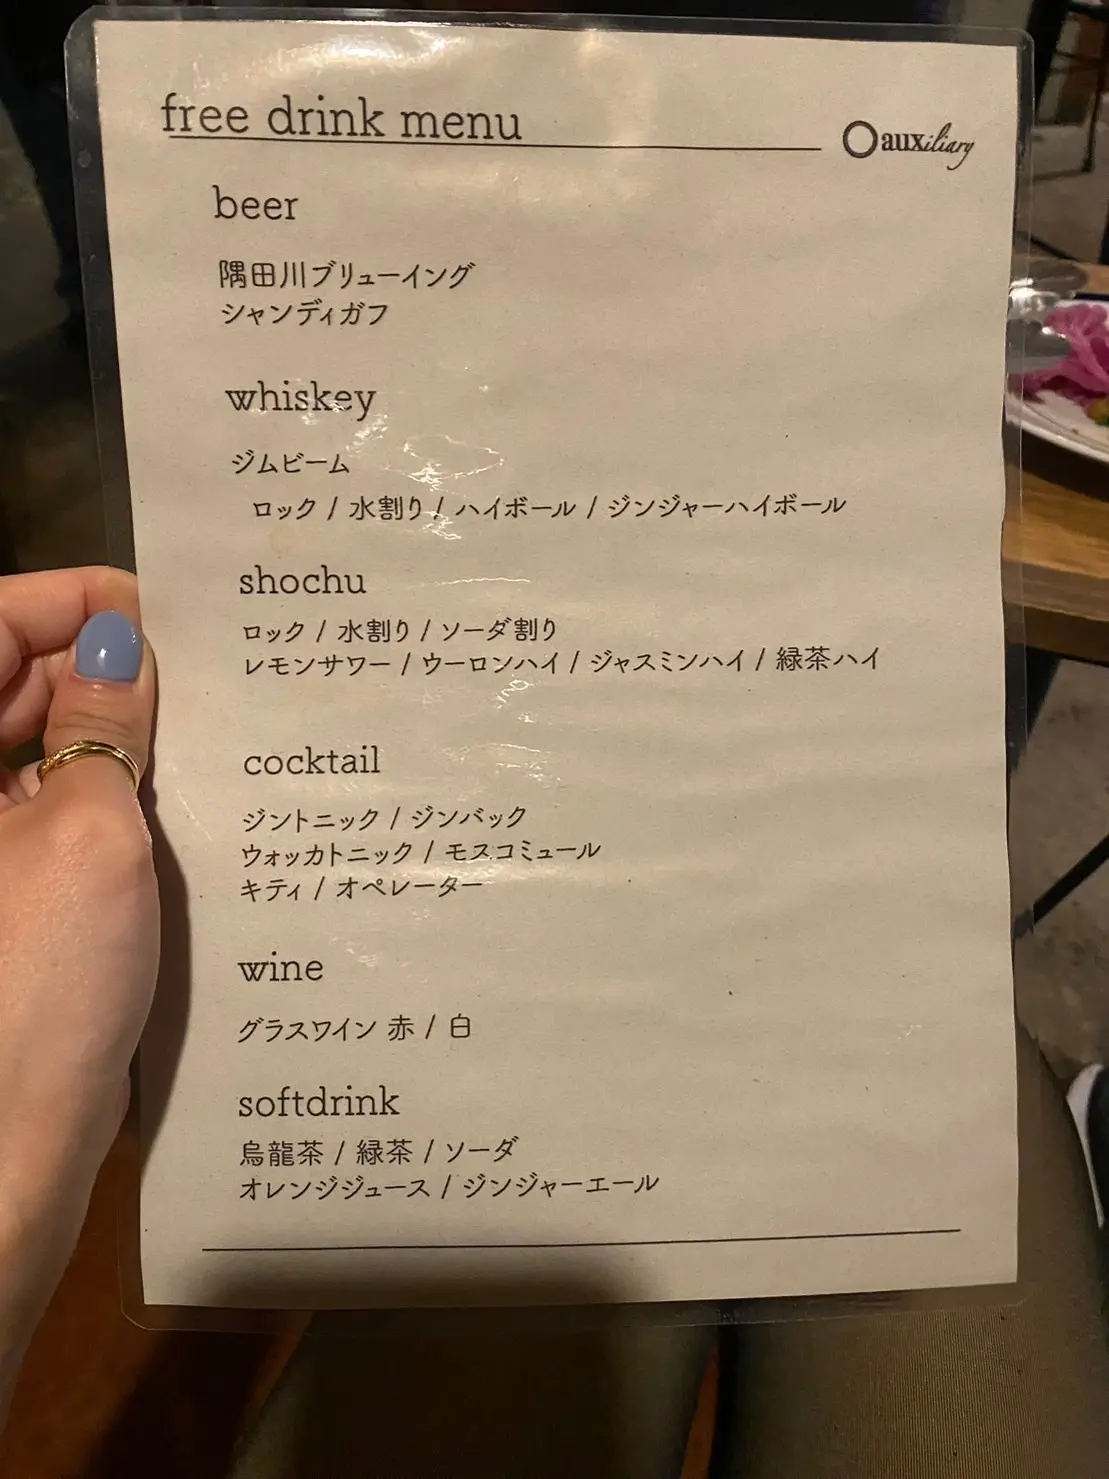 free drink menu
auxiliary
beer
隅田川ブリューイング
シャンディガフ
whiskey
ジムビーム
ロック / 水割り / ハイボール / ジンジャーハイボール
shochu
ロック / 水割り / ソーダ割り
レモンサワー / ウーロンハイ / ジャスミンハイ / 緑茶ハイ
cocktail
ジントニック / ジンバック
ウォッカトニック / モスコミュール
キティ / オペレーター
wine
グラスワイン 赤 / 白
softdrink
烏龍茶 / 緑茶 / ソーダ
オレンジジュース / ジンジャーエール